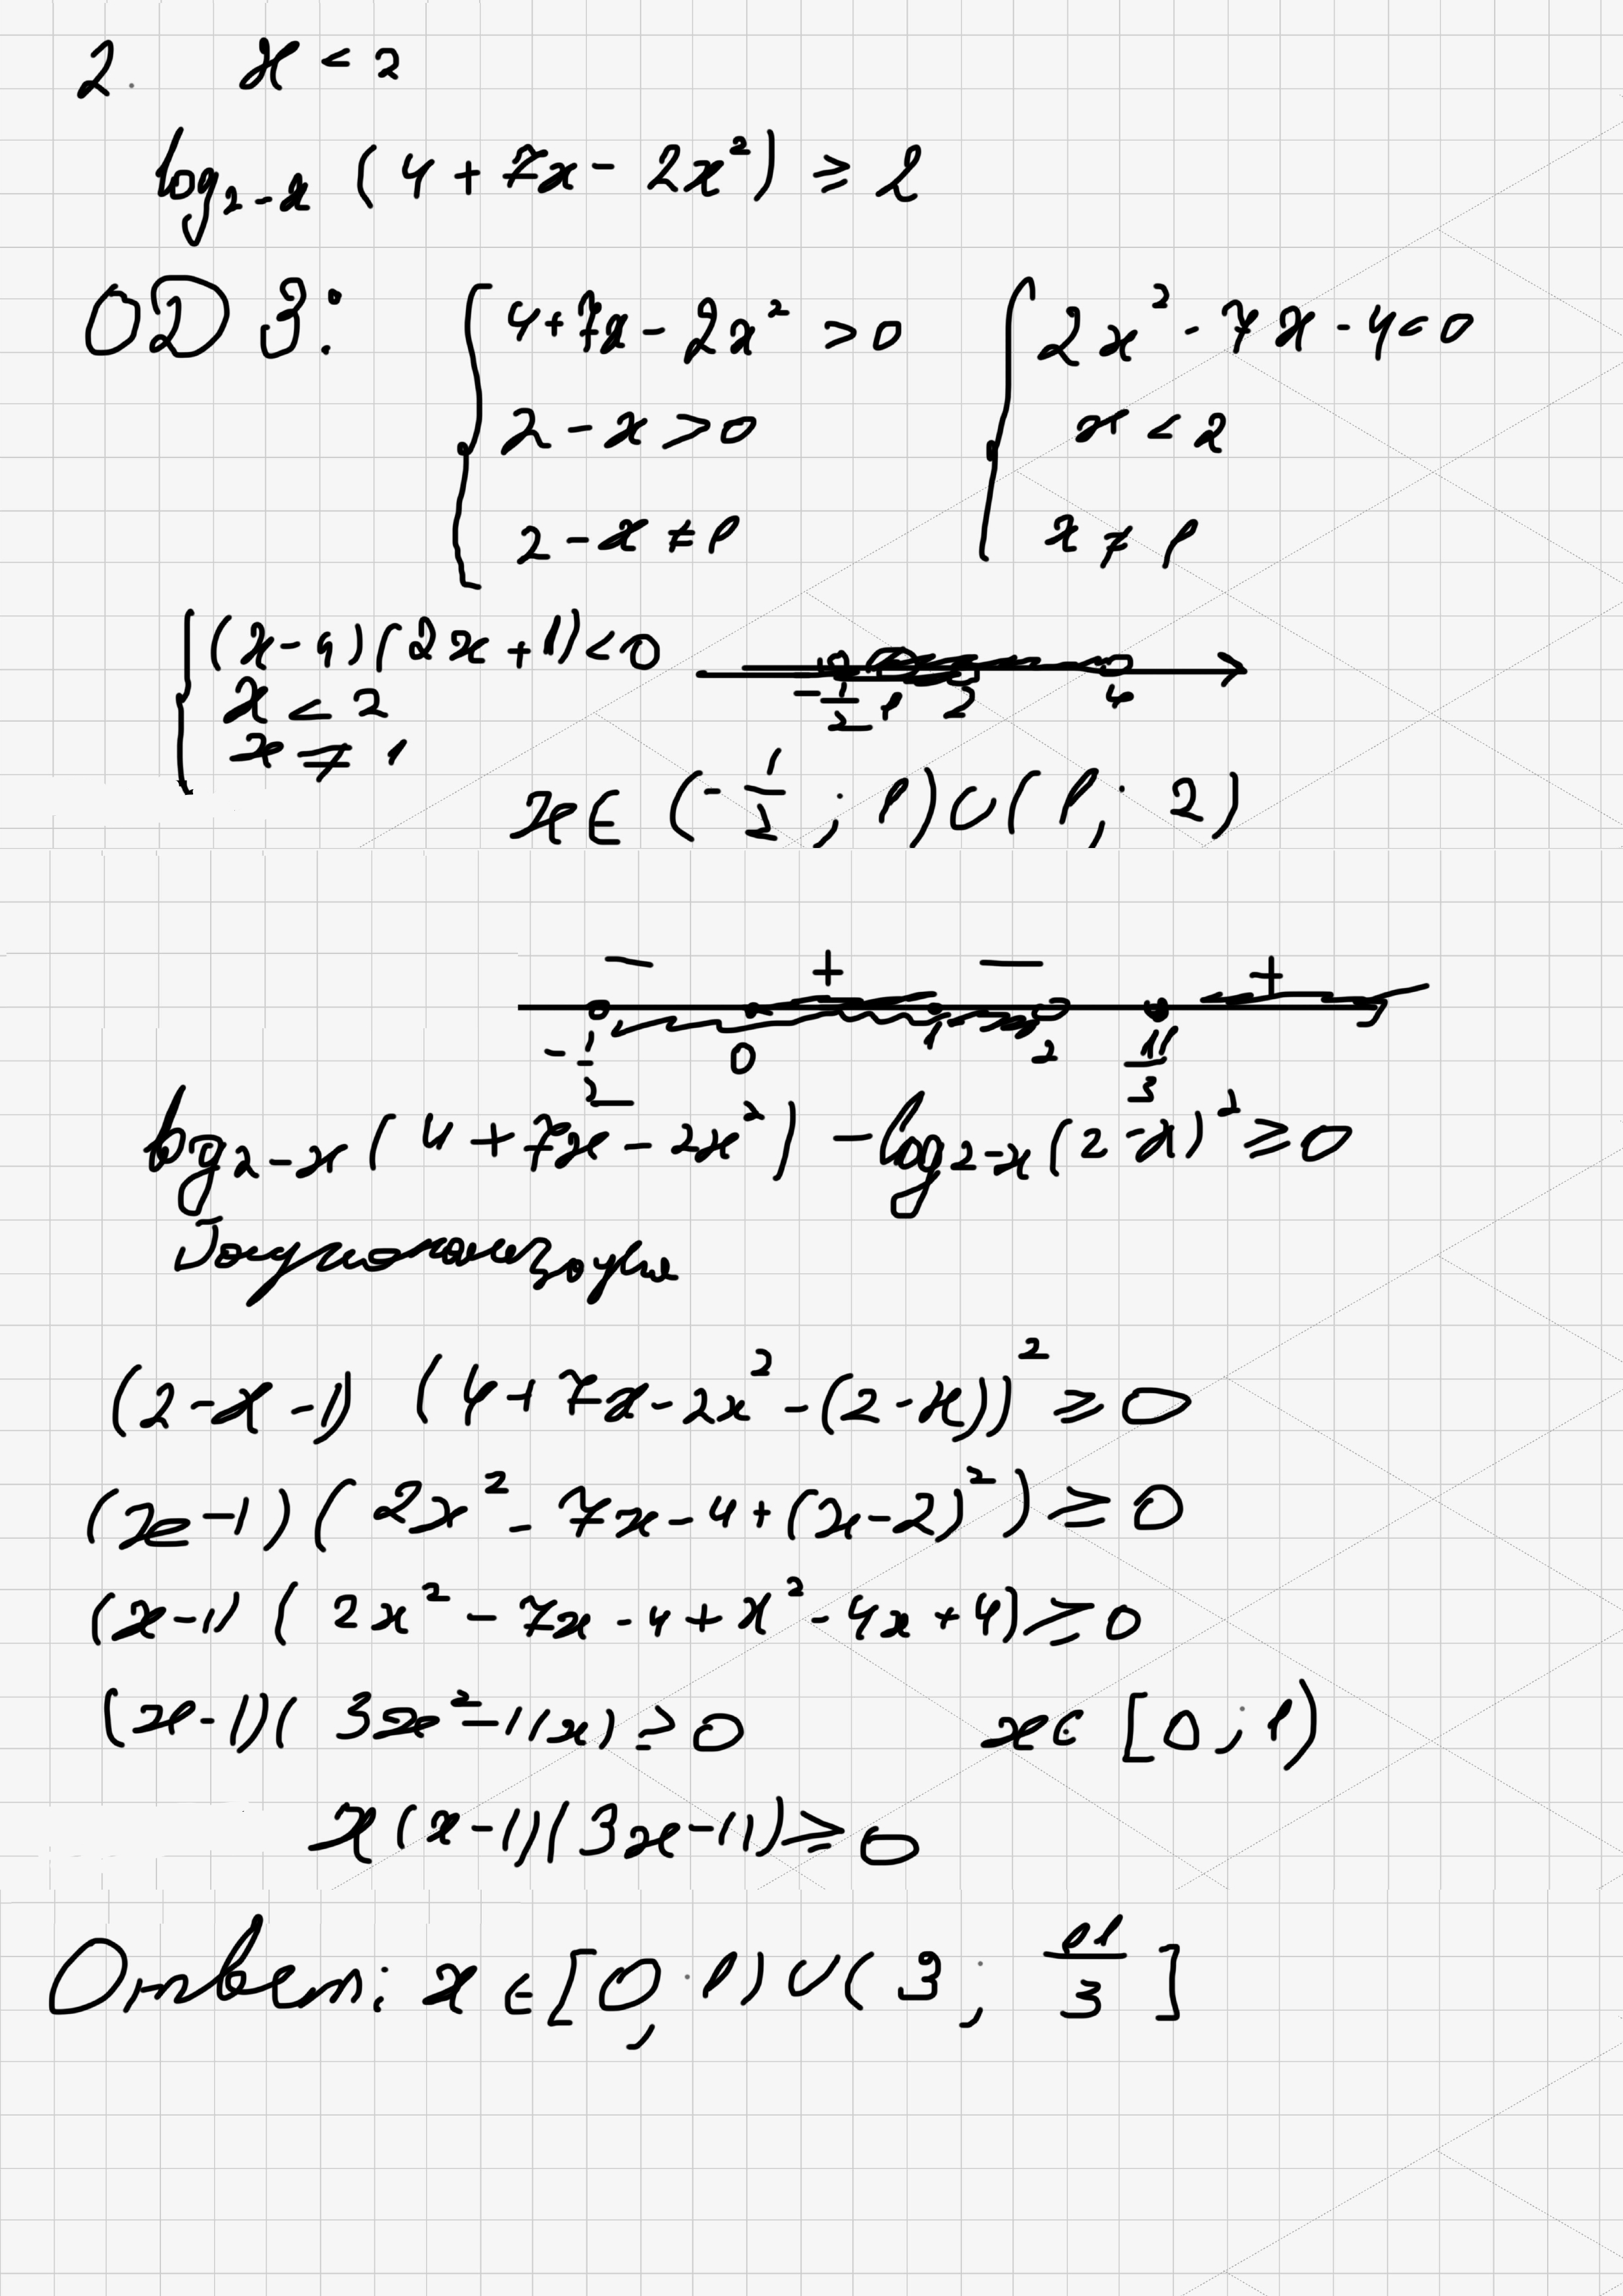 2. x < 2
log_{2-x} (4 + 7x - 2x²) ≥ 2
ОДЗ: { 4 + 7x - 2x² > 0 { 2x² - 7x - 4 < 0
2 - x > 0 x < 2
2 - x ≠ 1 x ≠ 1
{ (x - 4)(2x + 1) < 0
x < 2 -1/2 1 2 4
x ≠ 1
x ∈ (-1/2 ; 1) ∪ (1 ; 2)
- + - +
-1/2 0 1 2 11/3
log_{2-x} (4 + 7x - 2x²) - log_{2-x} (2 - x)² ≥ 0
(2 - x - 1) (4 + 7x - 2x² - (2 - x))² ≥ 0
(x - 1) (2x² - 7x - 4 + (x - 2)²) ≥ 0
(x - 1) (2x² - 7x - 4 + x² - 4x + 4) ≥ 0
(x - 1) (3x² - 11x) ≥ 0 x ∈ [0 ; 1)
x (x - 1) (3x - 11) ≥ 0
Ответ: x ∈ [0 ; 1) ∪ (3 ; 11/3]